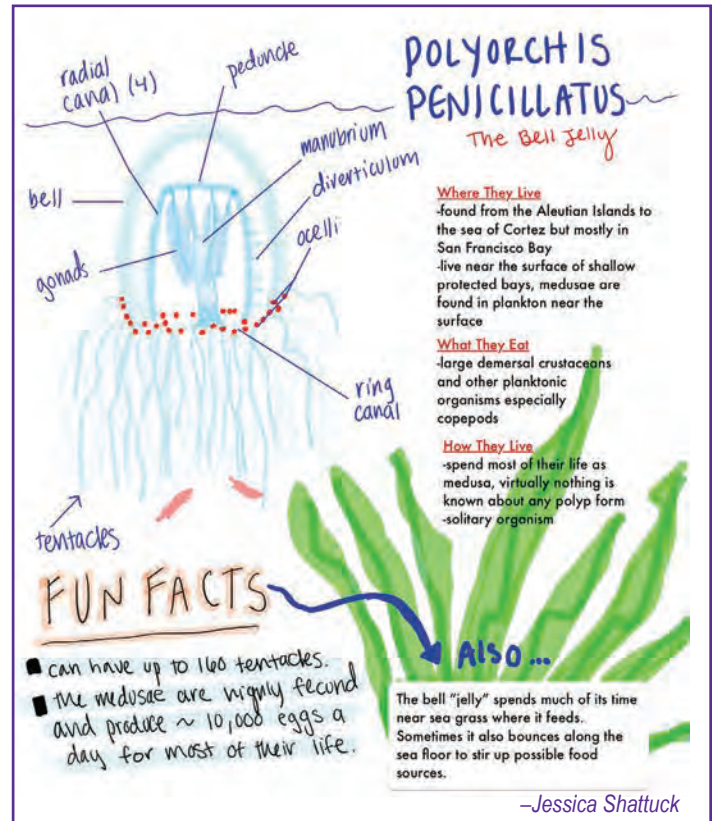 POLYORCHIS
PENICILLATUS
The Bell Jelly
radial
canal (4)
peduncle
manubrium
diverticulum
ocelli
bell
gonads
ring
canal
tentacles
Where They Live
-found from the Aleutian Islands to
the sea of Cortez but mostly in
San Francisco Bay
-live near the surface of shallow
protected bays, medusae are
found in plankton near the
surface
What They Eat
-large demersal crustaceans
and other planktonic
organisms especially
copepods
How They Live
-spend most of their life as
medusa, virtually nothing is
known about any polyp form
-solitary organism
FUN FACTS
can have up to 160 tentacles.
the medusae are highly fecund
and produce ~ 10,000 eggs a
day for most of their life.
Also...
The bell "jelly" spends much of its time
near sea grass where it feeds.
Sometimes it also bounces along the
sea floor to stir up possible food
sources.
–Jessica Shattuck